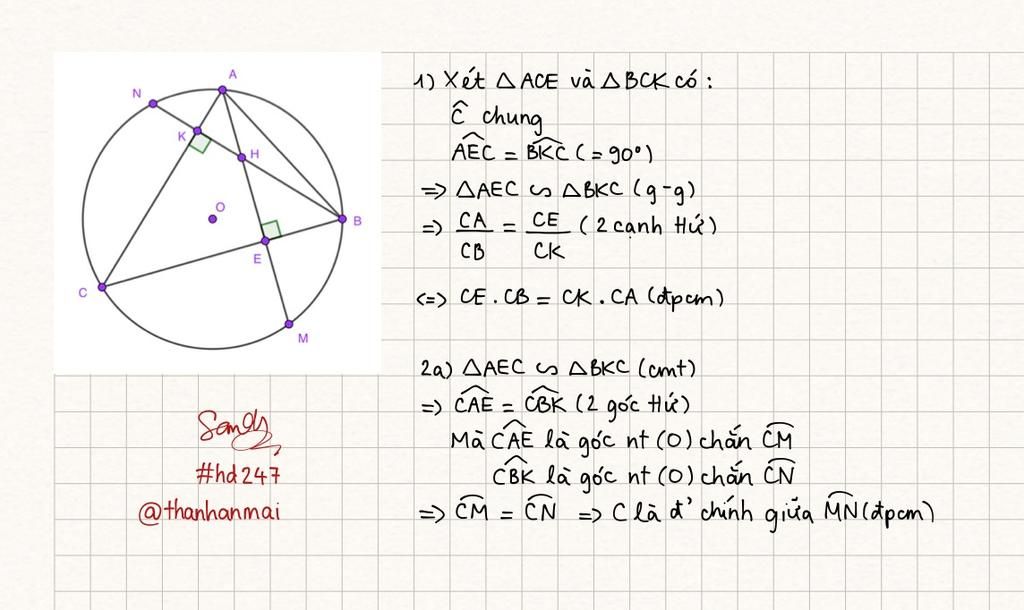 A
N
K
H
O
B
E
C
M
1) Xét △ACE và △BCK có:
Ĉ chung
AEC = BKC (= 90°)
=> △AEC ∽ △BKC (g-g)
=> CA/CB = CE/CK (2 cạnh tứ)
<=> CE . CB = CK . CA (đpcm)
2a) △AEC ∽ △BKC (cmt)
=> CAE = CBK (2 góc tứ)
Mà CAE là góc nt (O) chắn CM
CBK là góc nt (O) chắn CN
=> CM = CN => C là đ' chính giữa MN (đpcm)
Sandy
#hd247
@thanhanmai